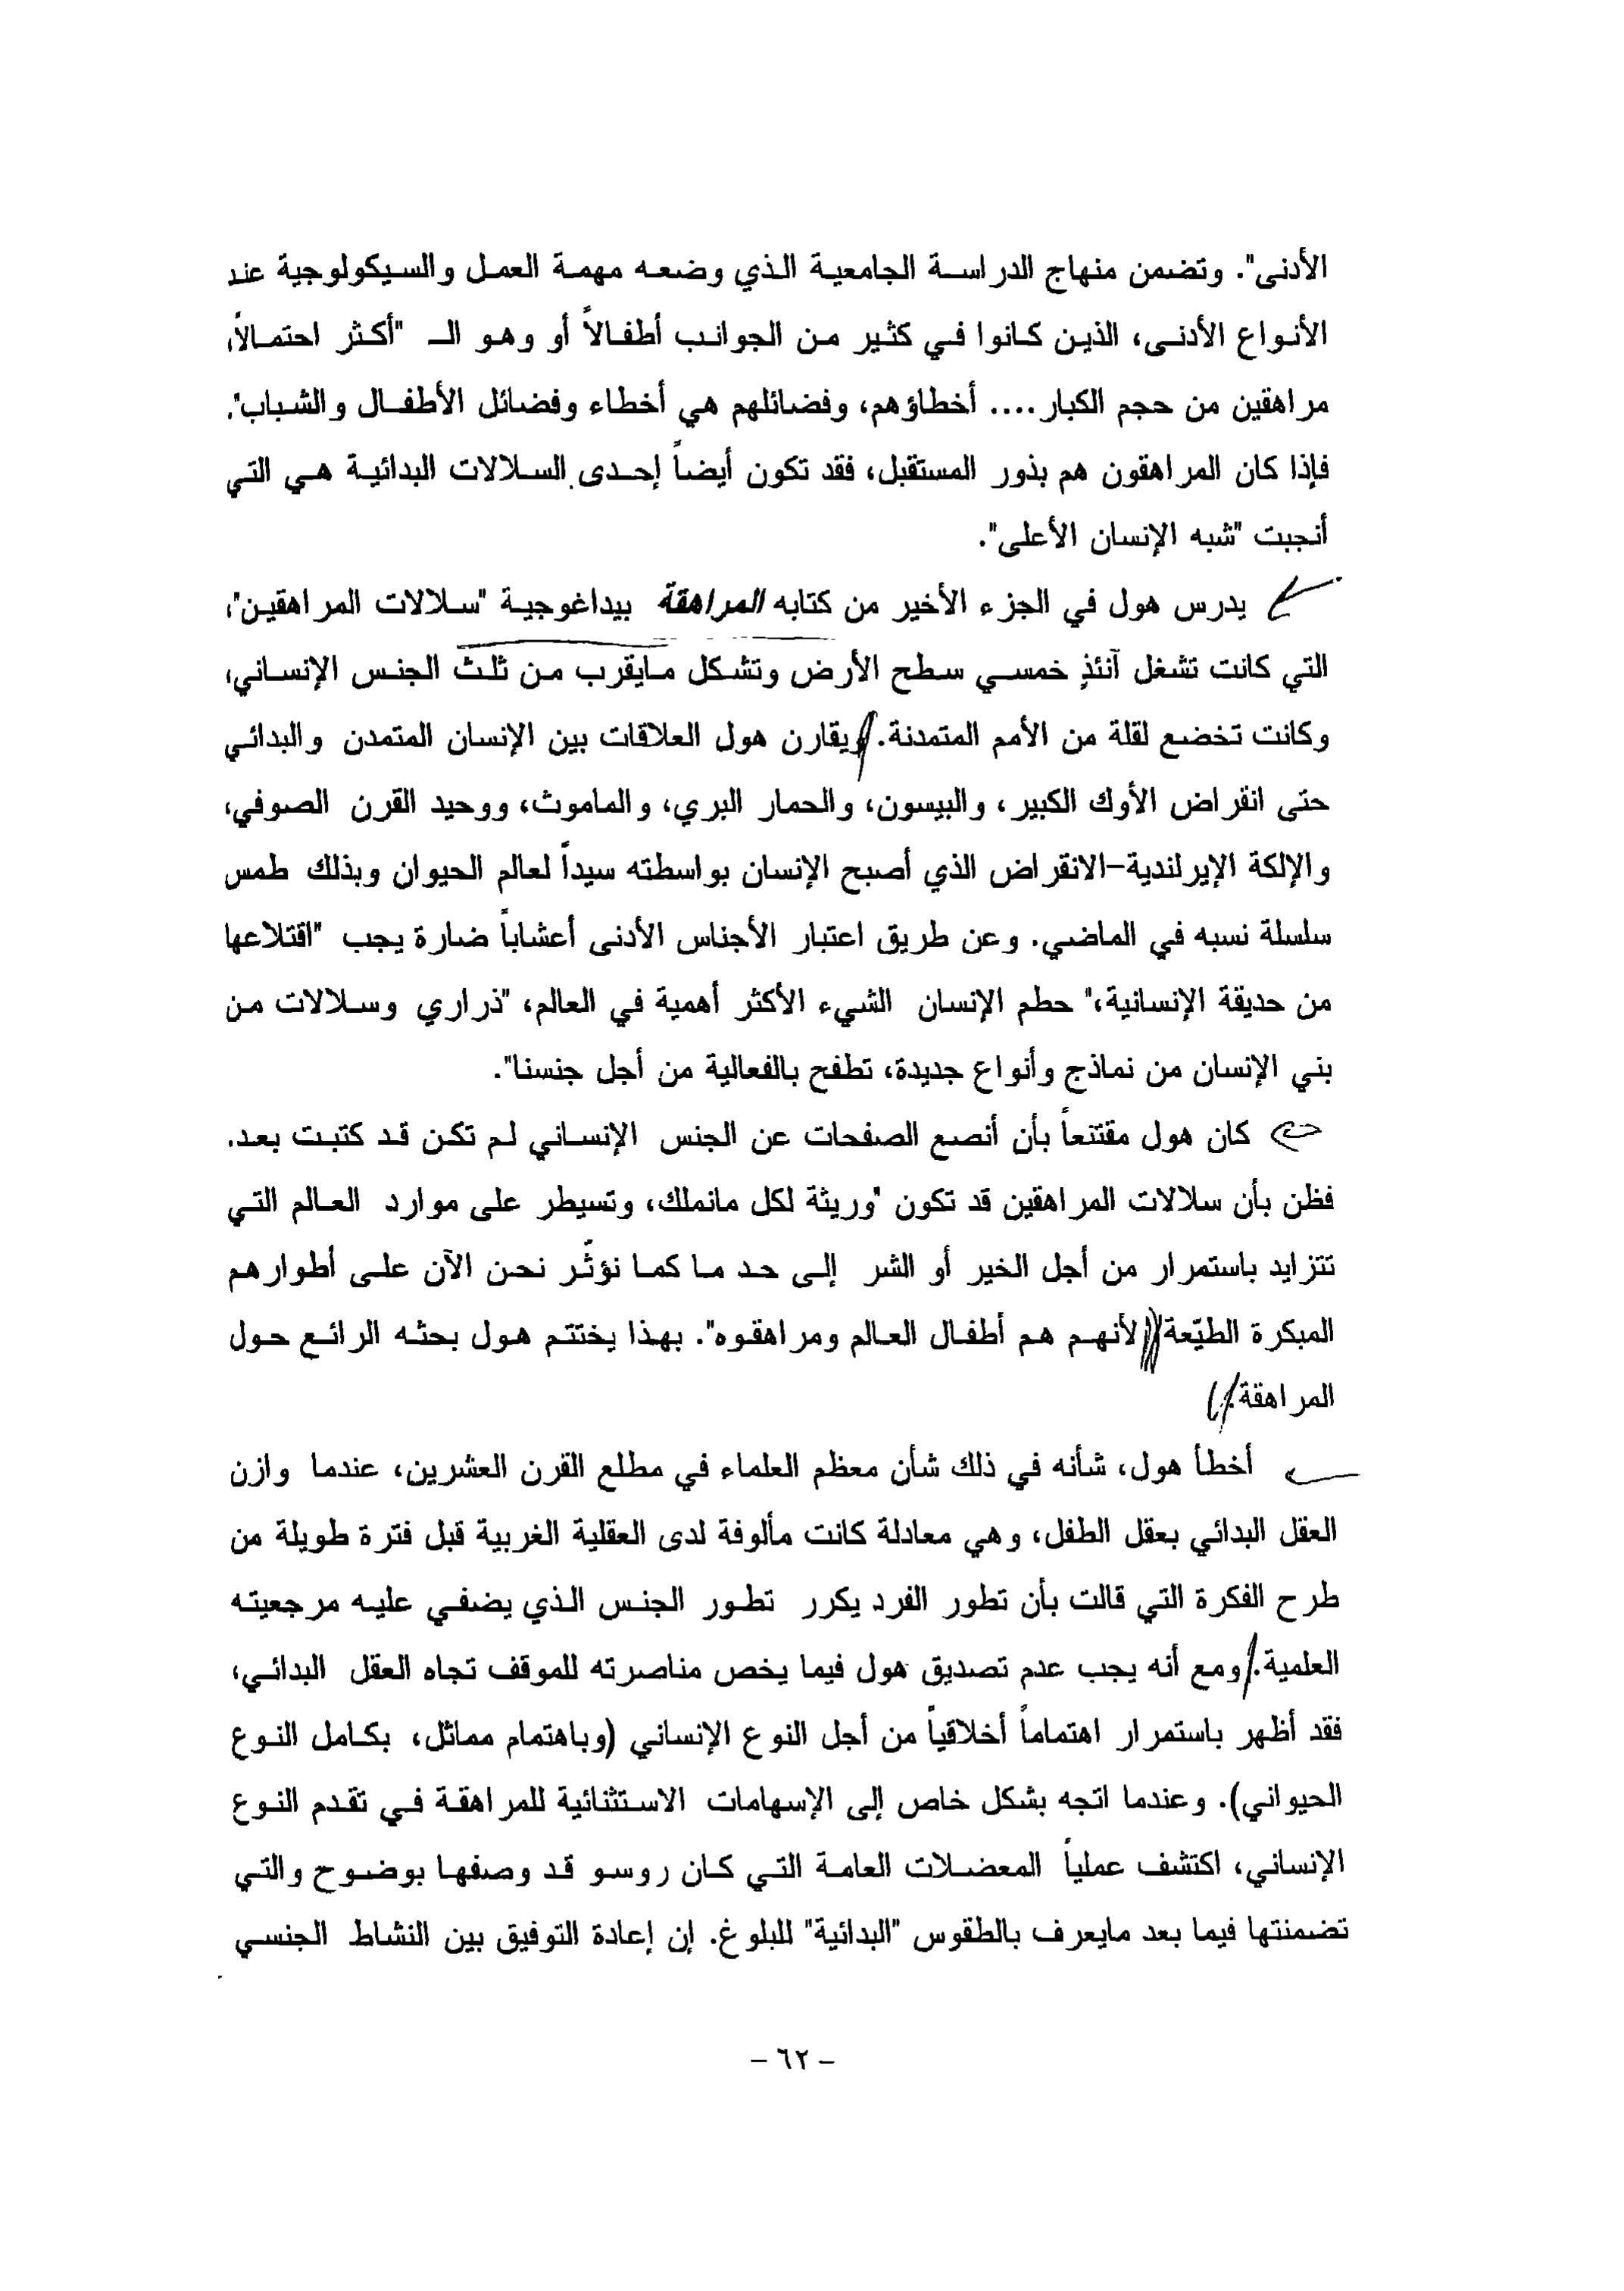 الأدنى". وتضمن منهاج الدراسة الجامعية الذي وضعه مهمة العمل والسيكولوجية عند
الأنواع الأدنى، الذين كانوا في كثير من الجوانب أطفالاً أو وهو الـ "أكثر احتمالاً،
مراهقين من حجم الكبار.... أخطاؤهم، وفضائلهم هي أخطاء وفضائل الأطفال والشباب".
فإذا كان المراهقون هم بذور المستقبل، فقد تكون أيضاً إحدى السلالات البدائية هي التي
أنجبت "شبه الإنسان الأعلى".
يدرس هول في الجزء الأخير من كتابه المراهقة بيداغوجية "سلالات المراهقين"،
التي كانت تشغل آنئذٍ خمسي سطح الأرض وتشكل مايقرب من ثلث الجنس الإنساني،
وكانت تخضع لقلة من الأمم المتمدنة. ويقارن هول العلاقات بين الإنسان المتمدن والبدائي
حتى انقراض الأوك الكبير، والبيسون، والحمار البري، والماموث، ووحيد القرن الصوفي،
والإلكة الإيرلندية-الانقراض الذي أصبح الإنسان بواسطته سيداً لعالم الحيوان وبذلك طمس
سلسلة نسبه في الماضي. وعن طريق اعتبار الأجناس الأدنى أعشاباً ضارة يجب "اقتلاعها
من حديقة الإنسانية،" حطم الإنسان الشيء الأكثر أهمية في العالم، "ذراري وسلالات من
بني الإنسان من نماذج وأنواع جديدة، تطفح بالفعالية من أجل جنسنا".
كان هول مقتنعاً بأن أنصع الصفحات عن الجنس الإنساني لم تكن قد كتبت بعد.
فظن بأن سلالات المراهقين قد تكون "وريثة لكل مانملك، وتسيطر على موارد العالم التي
تتزايد باستمرار من أجل الخير أو الشر إلى حد ما كما نؤثّر نحن الآن على أطوارهم
المبكرة الطيّعة لأنهم هم أطفال العالم ومراهقوه". بهذا يختتم هول بحثه الرائع حول
المراهقة.
أخطأ هول، شأنه في ذلك شأن معظم العلماء في مطلع القرن العشرين، عندما وازن
العقل البدائي بعقل الطفل، وهي معادلة كانت مألوفة لدى العقلية الغربية قبل فترة طويلة من
طرح الفكرة التي قالت بأن تطور الفرد يكرر تطور الجنس الذي يضفي عليه مرجعيته
العلمية. ومع أنه يجب عدم تصديق هول فيما يخص مناصرته للموقف تجاه العقل البدائي،
فقد أظهر باستمرار اهتماماً أخلاقياً من أجل النوع الإنساني (وباهتمام مماثل، بكامل النوع
الحيواني). وعندما اتجه بشكل خاص إلى الإسهامات الاستثنائية للمراهقة في تقدم النوع
الإنساني، اكتشف عملياً المعضلات العامة التي كان روسو قد وصفها بوضوح والتي
تضمنتها فيما بعد مايعرف بالطقوس "البدائية" للبلوغ. إن إعادة التوفيق بين النشاط الجنسي
- ٦٢ -